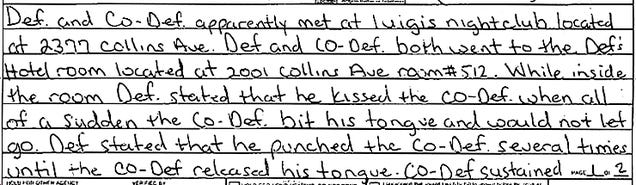 Def. and Co-Def. apparently met at luigis nightclub located
at 2377 Collins Ave. Def and Co-Def. both went to the Def's
Hotel room located at 2001 Collins Ave room #512. While inside
the room Def. stated that he kissed the Co-Def. when all
of a sudden the Co-Def. bit his tongue and would not let
go. Def stated that he punched the Co-Def. several times
until the Co-Def released his tongue. Co-Def sustained PAGE 1 OF 2